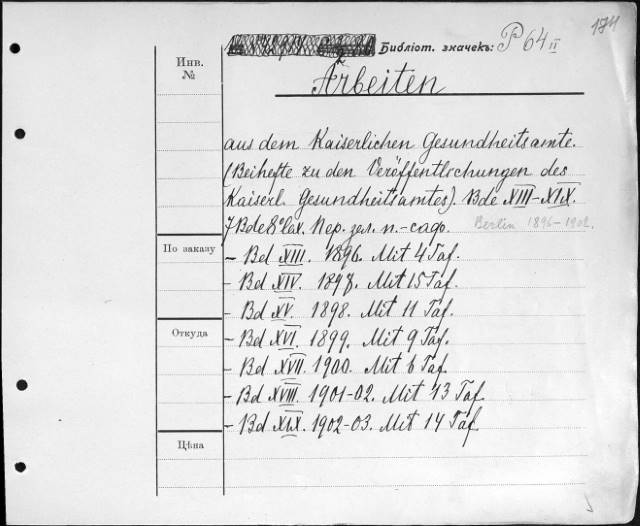 Библіот. значекъ: P 64 II
1341
Инв.
№
Arbeiten
aus dem Kaiserlichen Gesundheitsamte.
(Beihefte zu den Veröffentlichungen des
Kaiserl. Gesundheitsamtes). Bde XIII–XIX.
7 Bde 8° lex. Пер. зел. п.-сафр. Berlin 1896–1902.
По заказу
– Bd XIII. 1896. Mit 4 Taf.
– Bd XIV. 1898. Mit 15 Taf.
– Bd XV. 1898. Mit 11 Taf.
Откуда
– Bd XVI. 1899. Mit 9 Taf.
– Bd XVII. 1900. Mit 6 Taf.
– Bd XVIII. 1901-02. Mit 13 Taf.
– Bd XIX. 1902-03. Mit 14 Taf.
Цѣна